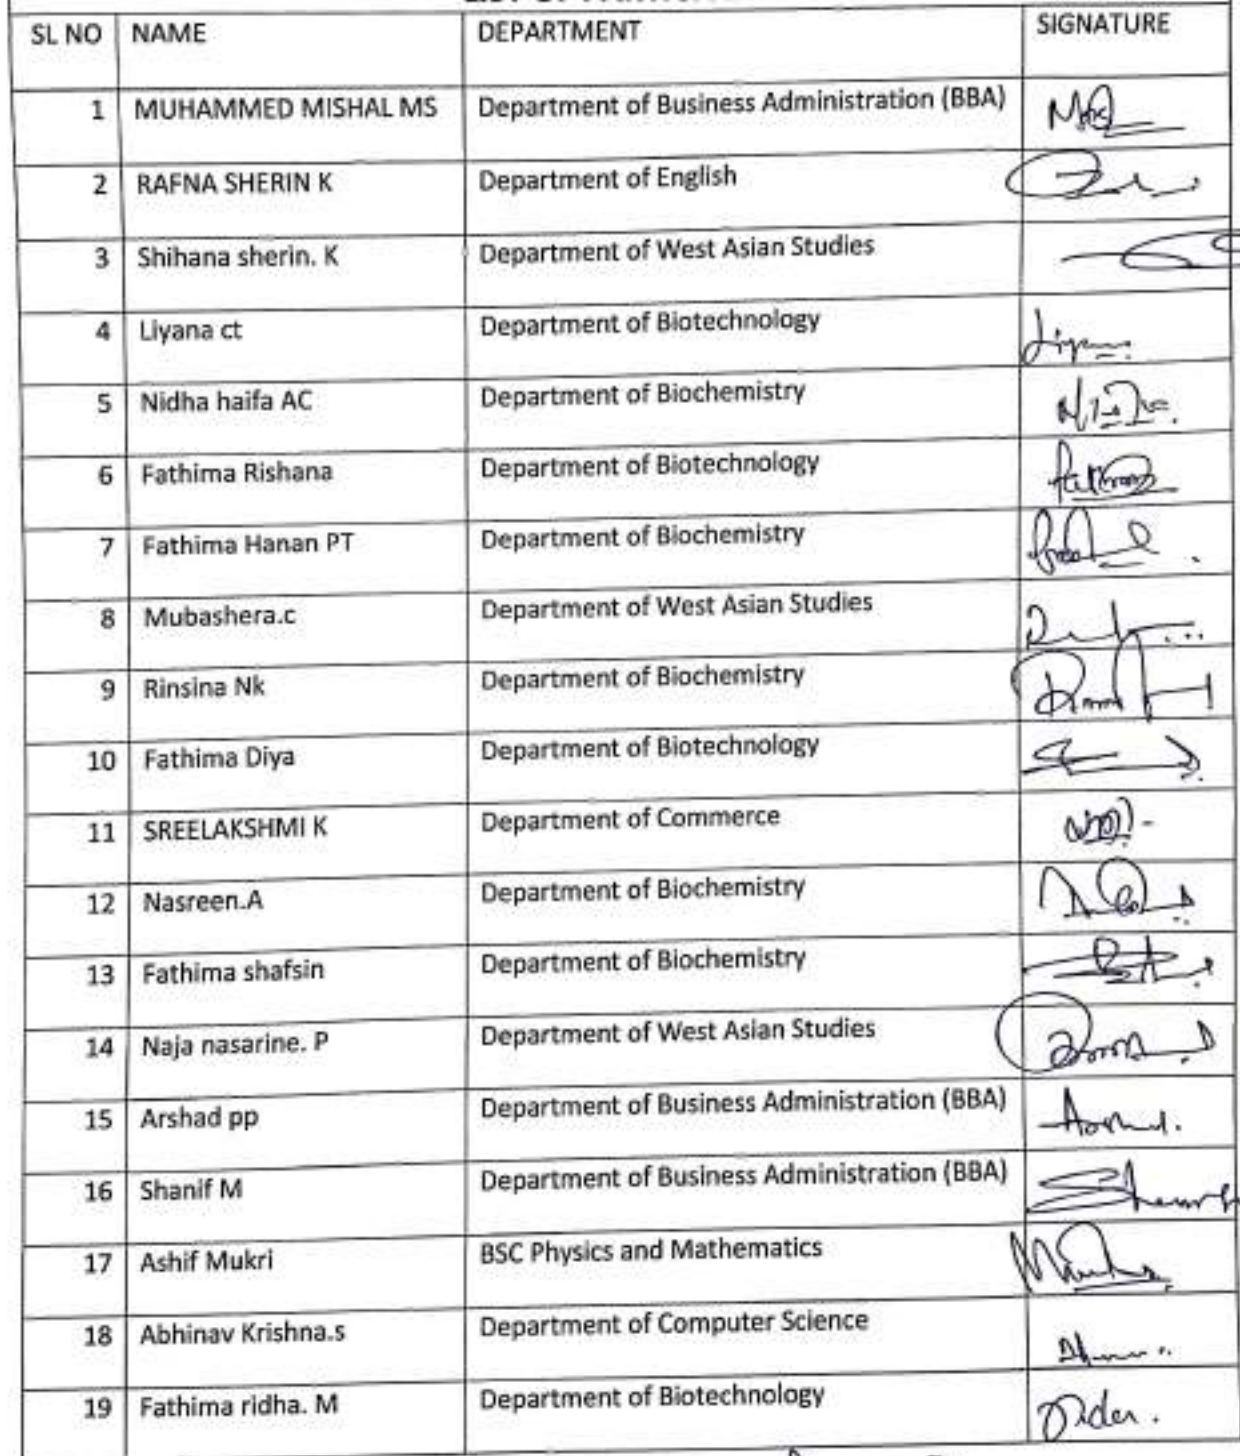 SL NO NAME DEPARTMENT SIGNATURE
1 MUHAMMED MISHAL MS Department of Business Administration (BBA)
2 RAFNA SHERIN K Department of English
3 Shihana sherin. K Department of West Asian Studies
4 Liyana ct Department of Biotechnology
5 Nidha haifa AC Department of Biochemistry
6 Fathima Rishana Department of Biotechnology
7 Fathima Hanan PT Department of Biochemistry
8 Mubashera.c Department of West Asian Studies
9 Rinsina Nk Department of Biochemistry
10 Fathima Diya Department of Biotechnology
11 SREELAKSHMI K Department of Commerce
12 Nasreen.A Department of Biochemistry
13 Fathima shafsin Department of Biochemistry
14 Naja nasarine. P Department of West Asian Studies
15 Arshad pp Department of Business Administration (BBA)
16 Shanif M Department of Business Administration (BBA)
17 Ashif Mukri BSC Physics and Mathematics
18 Abhinav Krishna.s Department of Computer Science
19 Fathima ridha. M Department of Biotechnology